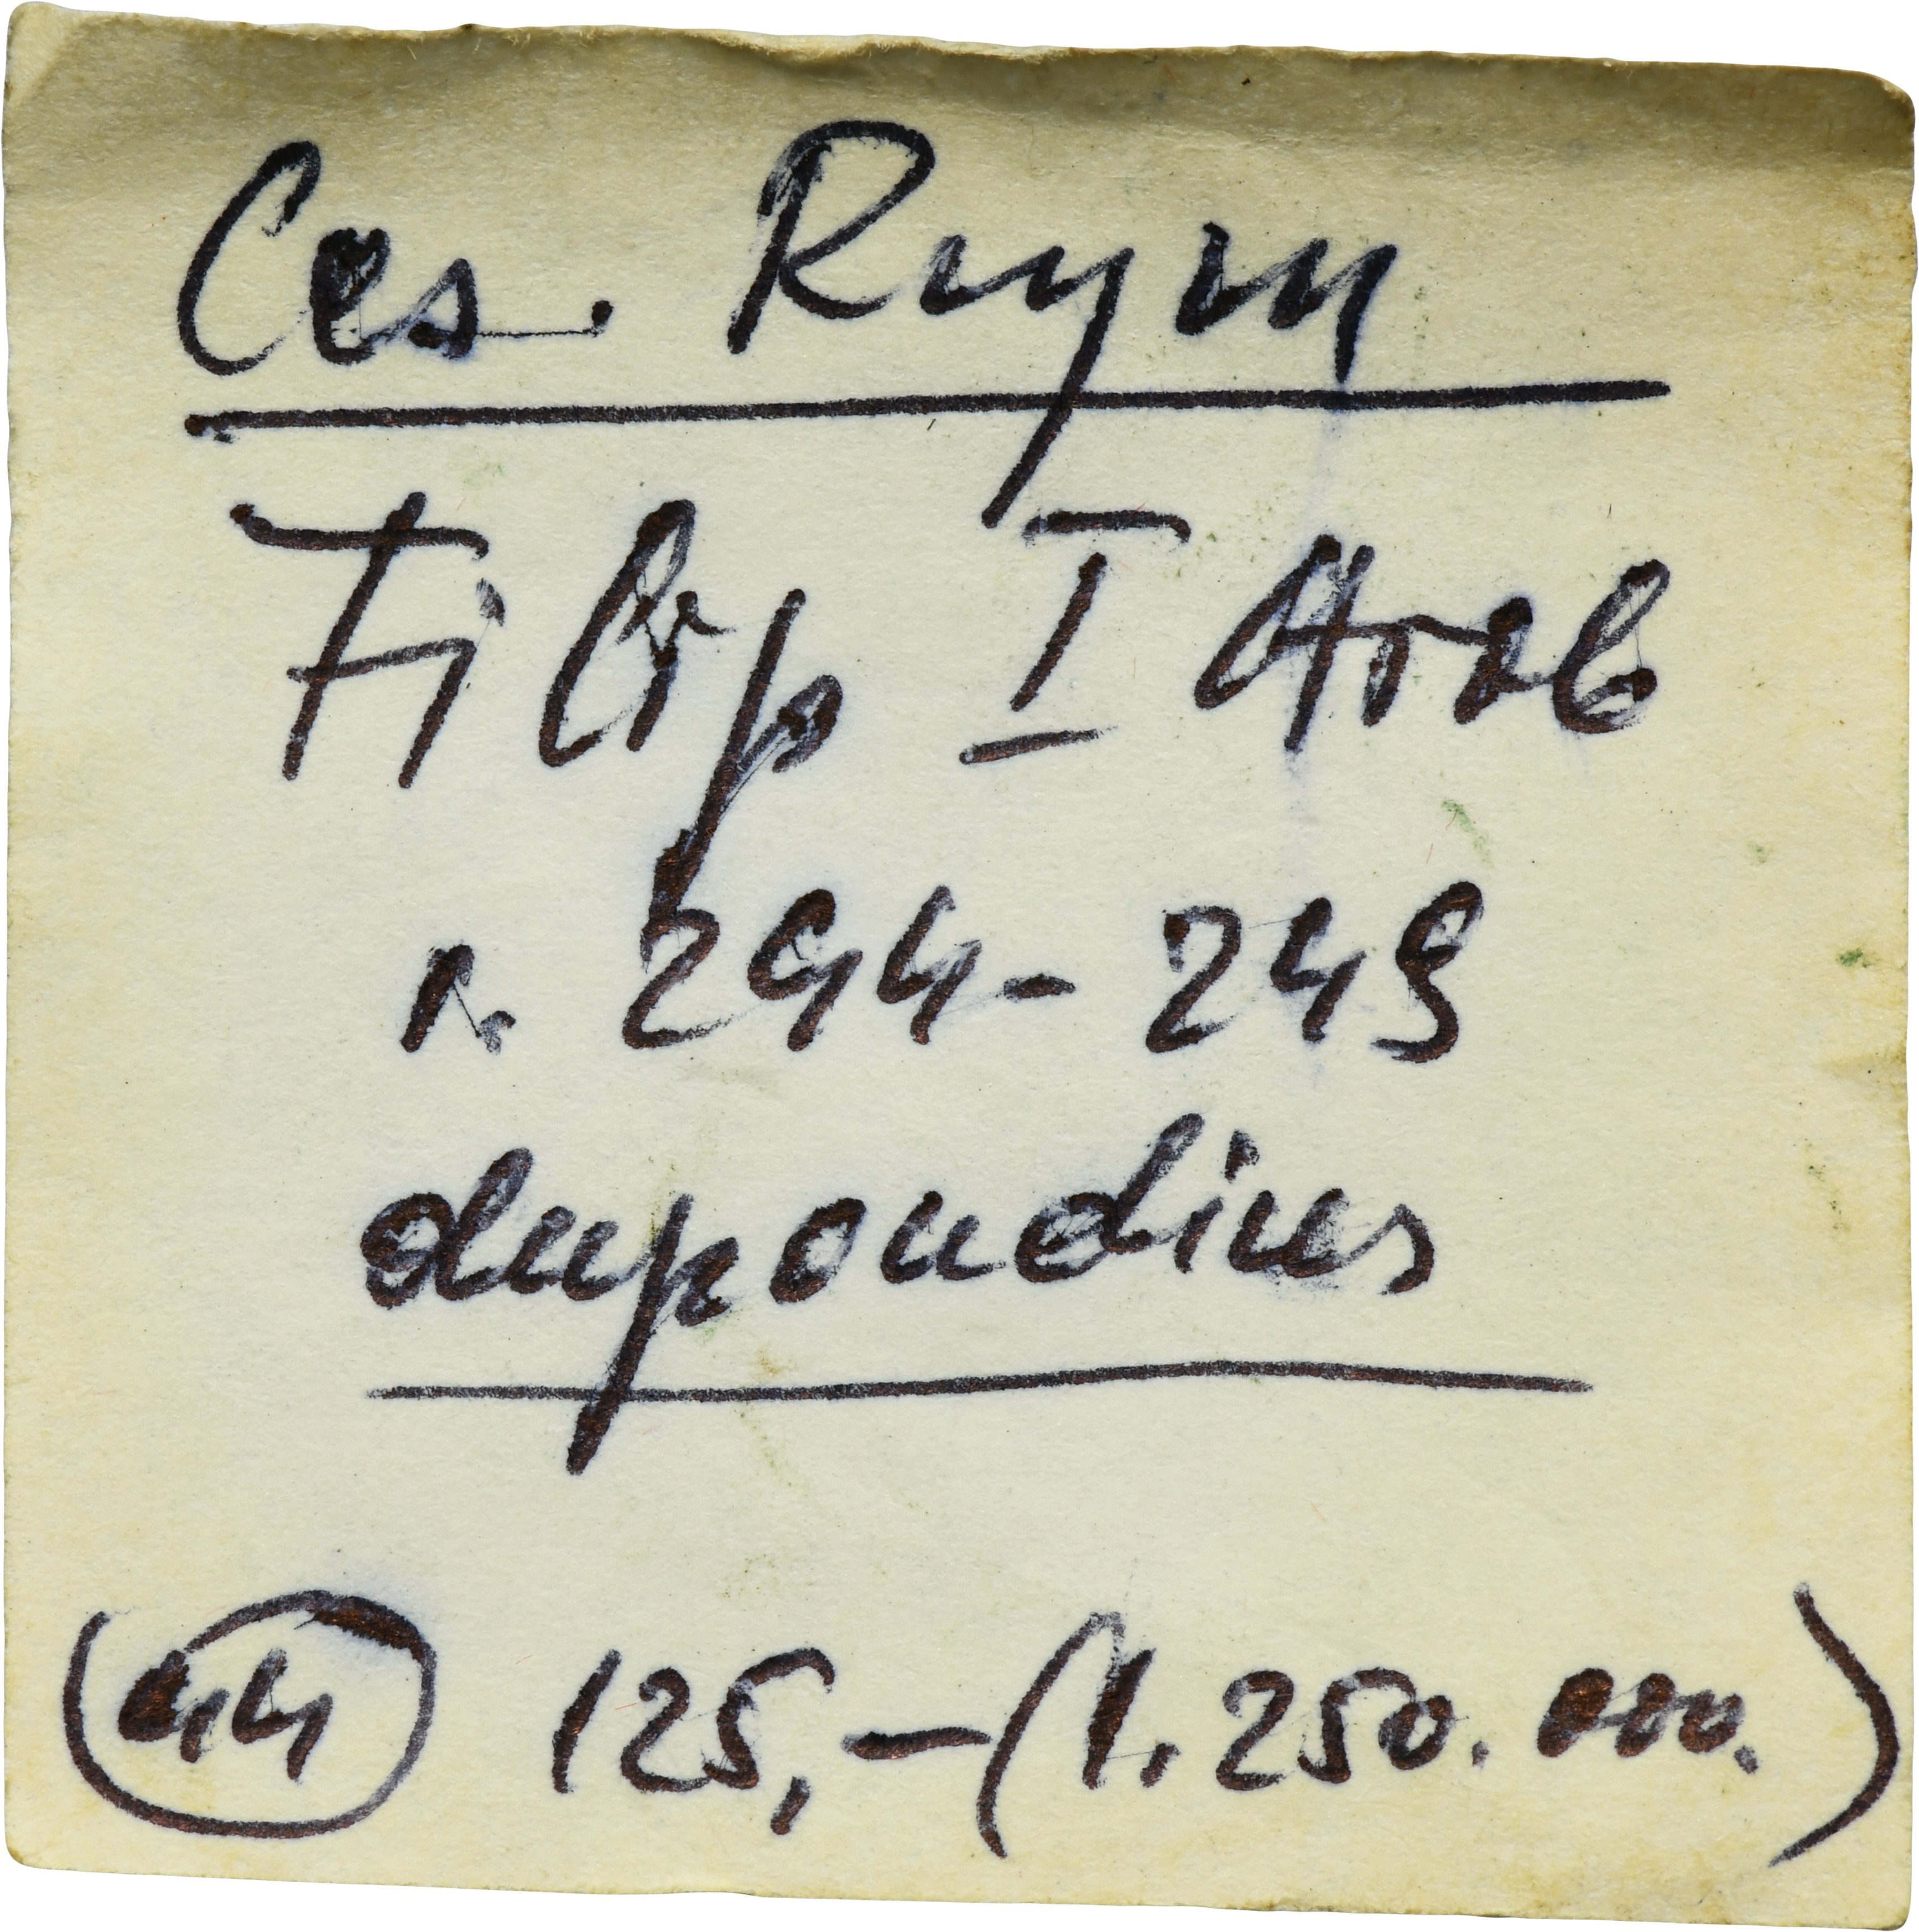 Ces. Rzym
Filip I Arab
r. 244-249
dupondius
44 125,-(1.250.000.)